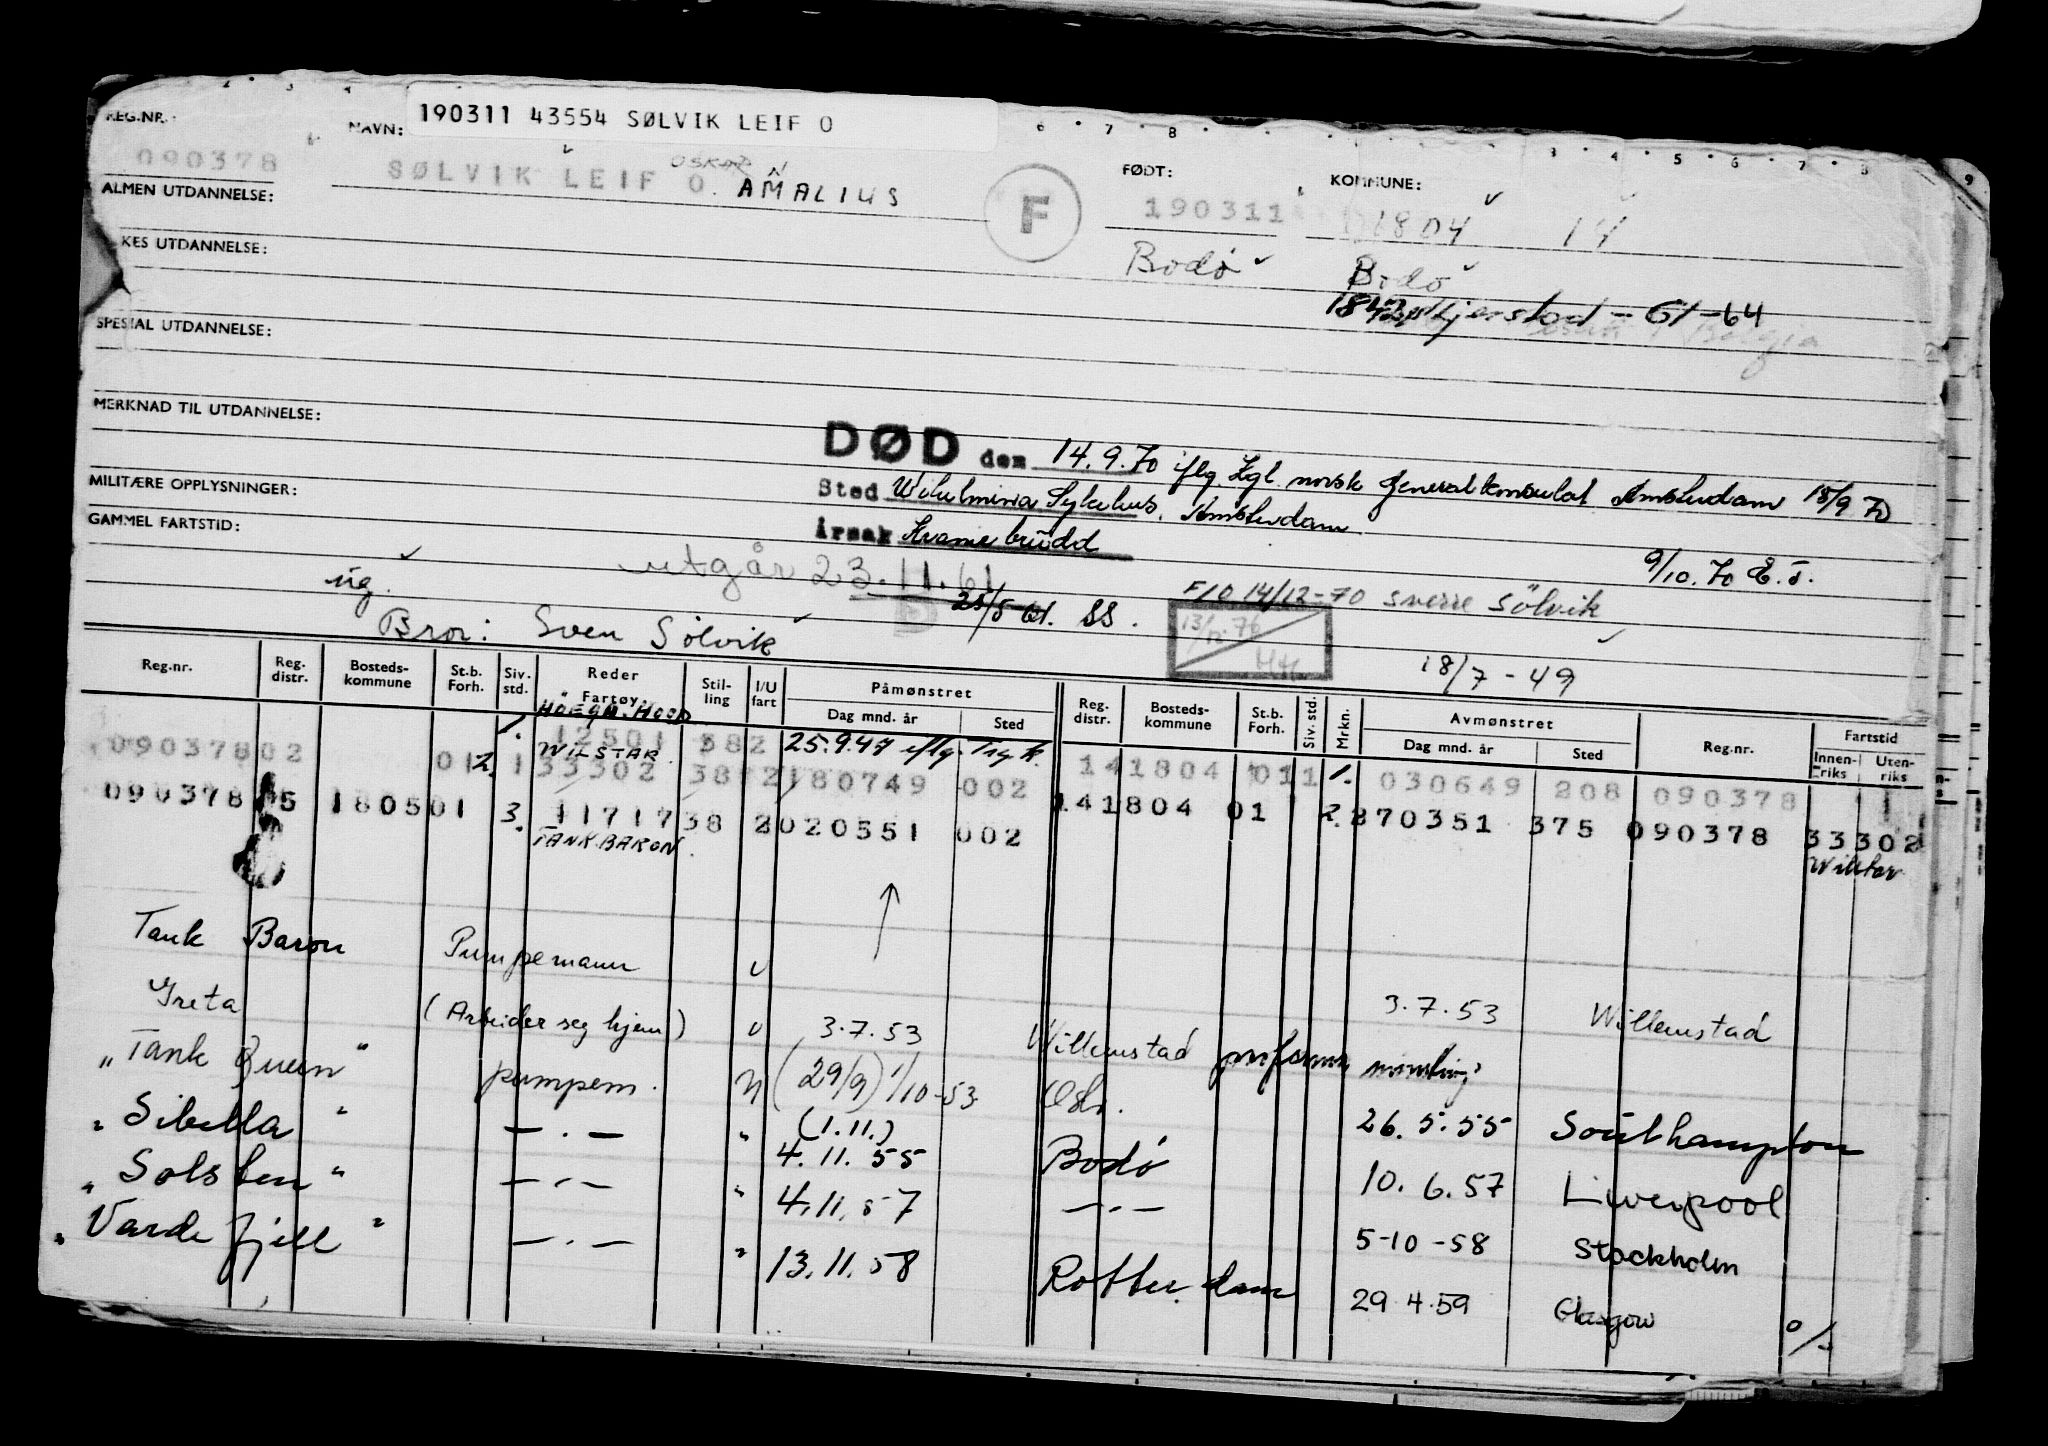 190311 43554 SØLVIK LEIF O
REG.NR.
NAVN:
090378
SØLVIK LEIF O. OSKAR AMALIUS
F
FØDT:
190311
Bodø
KOMMUNE:
1804 14
Bodø
Skjerstad - 61-64
ALMEN UTDANNELSE:
KES UTDANNELSE:
SPESIAL UTDANNELSE:
MERKNAD TIL UTDANNELSE:
MILITÆRE OPPLYSNINGER:
GAMMEL FARTSTID:
DØD den 14.9.70 iflg. norsk Generalkonsulat Amsterdam 18/9 70
Sted Wilhelmina Sykehus, Amsterdam
Årsak
9/10.70 E.T.
utgår 23.11.61
25/5 61. SS.
ug.
F10 14/12-70 Sverre Sölvik
13/12.76
HH
Bror: Sven Sölvik
18/7-49
Reg.nr. Reg. distr. Bosteds-kommune St.b. Forh. Siv. std. Reder Fartøy Stil-ling I/U fart Påmønstret Dag mnd. år Sted Reg. distr. Bosteds-kommune St.b. Forh. Siv. std. Mrkn. Avmønstret Dag mnd. år Sted Reg.nr. Fartstid Innen-riks Uten-riks
HÖEGH HOOD
1. 12501 382 25.9.47 iflg. Trg.k.
09037802 01 2. 1 WILSTAR 33302 38 2 180749 002 141804 011 1. 030649 208 090378
090378 5 180501 3. 11717 38 2 020551 002 141804 01 2. 270351 375 090378 33302
TANK BARON. Wilstar
Tank Baron Pumpemann U 3.7.53 Willemstad
Greta (Arbeider seg hjem) U 3.7.53 Willemstad proforma
„Tank Queen" pumpem. U (29/9) 1/10-53 Oslo. 26.5.55 Southampton
„Sibella" — . — " (1.11.) 4.11.55 Bodø 10.6.57 Liverpool
„Solsten" — . — " 4.11.57 — . — 5-10-58 Stockholm
„Vardefjell" — . — " 13.11.58 Rotterdam 29.4.59 Glasgow